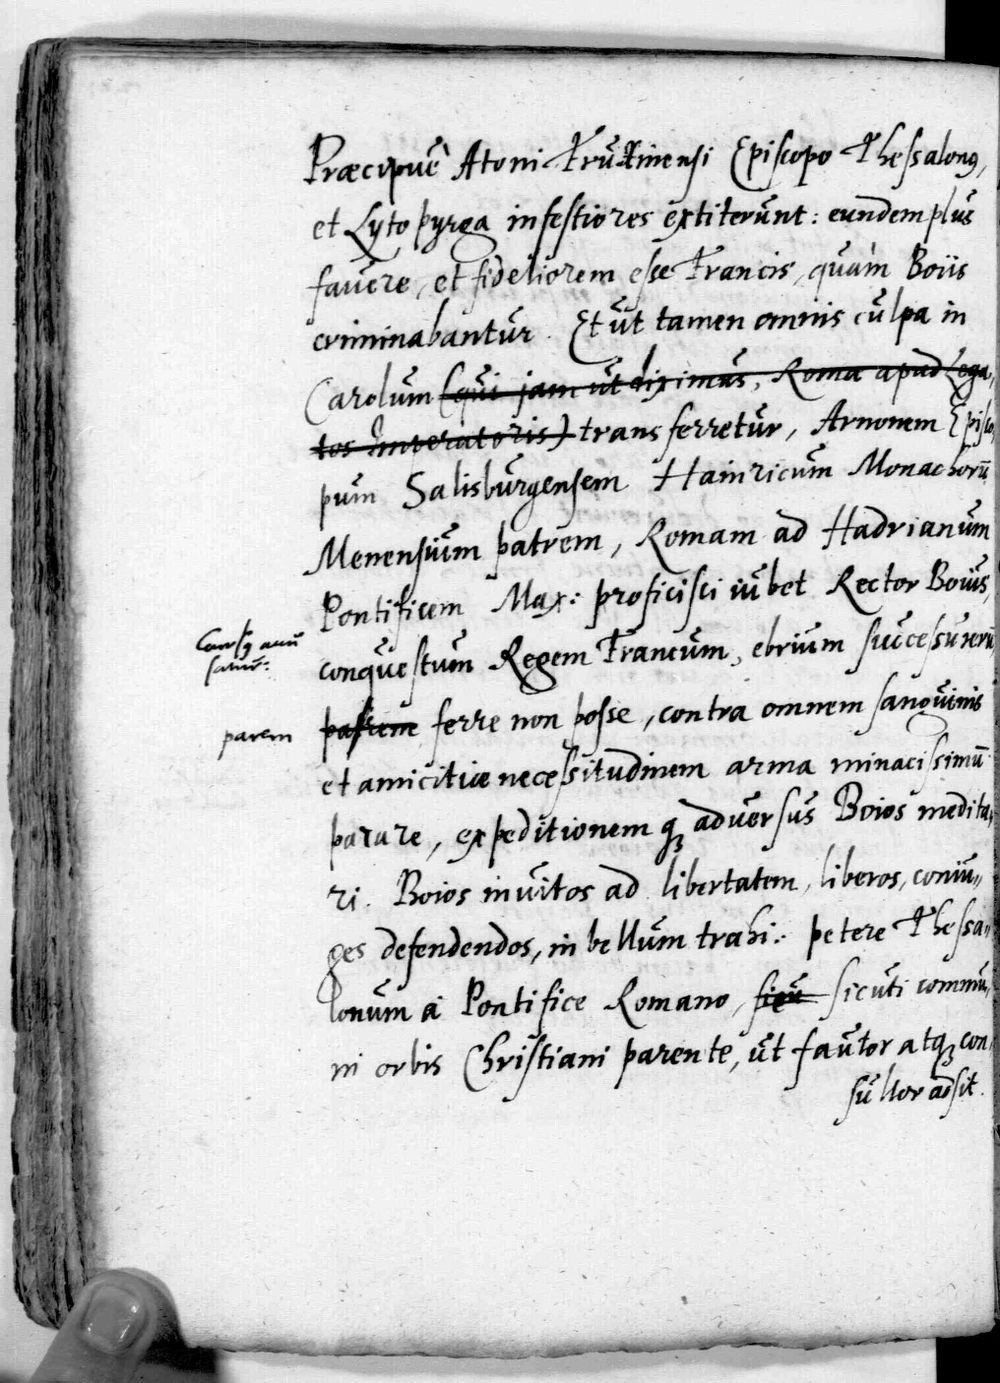 Præcipuè Atoni Fruxinensi Episcopo Thessalonꝰ,
et Lytopyrga infestiores extiterunt: eundem plus
favere, et fideliorem esse Francis, quàm Boiis
criminabantur. Et ut tamen omnis culpa in
Carolum (qui jam ut diximus, Roma apud Lega,
tos Imperatoris) transferretur, Arnonem Episco,
pum Salisburgensem Hainricum Monachorū
Menensium patrem, Romam ad Hadrianum
Pontificem Max: proficisci iubet Rector Boius,
conquestum Regem Francum, ebrium successu rerū
parem
ferre non posse, contra omnem sanguinis
et amicitiæ necessitudinem arma minacissimū
parare, expeditionemq́ꝫ adversus Boios medita,
ri. Boios invitos ad libertatem, liberos, coniu„
ges defendendos, in bellum trahi: petere Thessa„
lonum à Pontifice Romano, sicu sicuti commu„
ni orbis Christiani parente, ut fautor atqꝫ con„
sultor adsit.